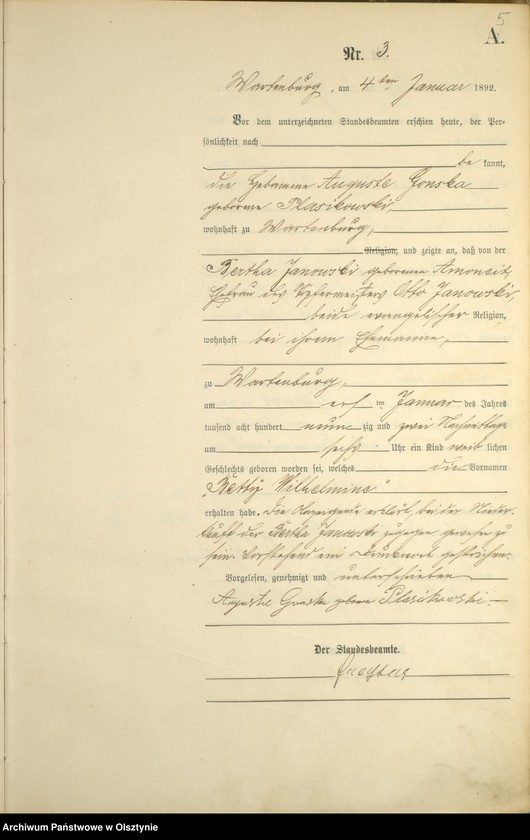 5
A.
Nr. 3.
Wartenburg, am 4ten Januar 1892.
Vor dem unterzeichneten Standesbeamten erschien heute, der Per-
sönlichkeit nach
be kannt,
die Hebamme Auguste Gonska
geborene Plasikowski,
wohnhaft zu Wartenburg,
Religion, und zeigte an, daß von der
Bertha Janowski geborenen Amoneit,
Ehefrau des Töpfermeisters Otto Janowski,
beide evangelischer Religion,
wohnhaft bei ihrem Ehemanne,
zu Wartenburg,
am ersten Januar des Jahres
tausend acht hundert neun zig und zwei Nachmittags
um sechs Uhr ein Kind weib lichen
Geschlechts geboren worden sei, welches die Vornamen
„Betty Wilhelmine"
erhalten habe. Die Anzeigende erklärt, bei der Nieder-
kunft der Bertha Janowski zugegen gewesen zu
sein. Vorstehend ein Druckwort gestrichen.
Vorgelesen, genehmigt und unterschrieben
Auguste Gonska geborene Plasikowski
Der Standesbeamte.
Archiwum Państwowe w Olsztynie